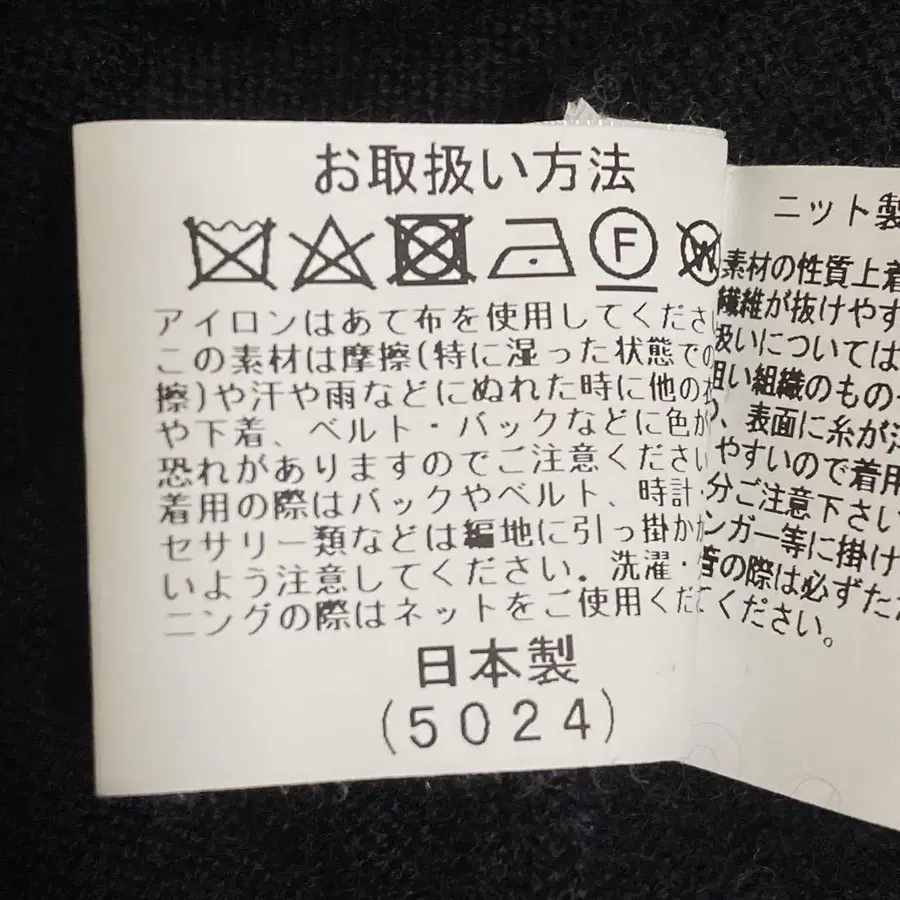 お取扱い方法
F
W
アイロンはあて布を使用してくださ
この素材は摩擦(特に湿った状態での
擦)や汗や雨などにぬれた時に他の衣
や下着、ベルト・バックなどに色が
恐れがありますのでご注意ください
着用の際はバックやベルト、時計・
セサリー類などは編地に引っ掛か
いよう注意してください。洗濯・
ニングの際はネットをご使用くだ
日本製
(5024)
ニット製
素材の性質上着
繊維が抜けやす
扱いについては
粗い組織のもの
、表面に糸が
やすいので着用
分ご注意下さい
ンガー等に掛け
着の際は必ずた
てください。